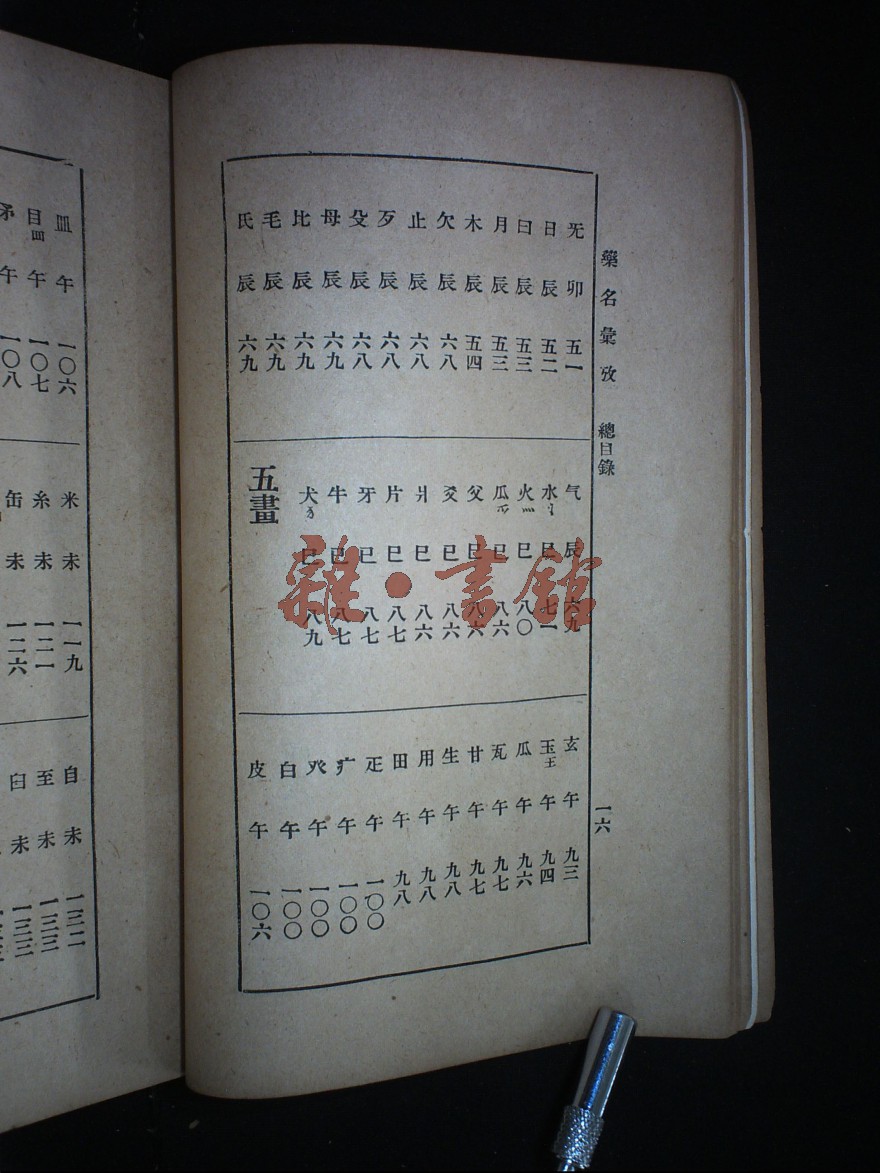 藥名彙攷 總目錄 一六
旡 卯 五一
日 辰 五二
曰 辰 五三
月 辰 五三
木 辰 五四
欠 辰 六八
止 辰 六八
歹 辰 六八
殳 辰 六八
母 辰 六九
比 辰 六九
毛 辰 六九
氏 辰 六九
气 辰 六九
水氵 巳 七一
火灬 巳 八〇
瓜爫 巳 八六
父 巳 八六
爻 巳 八六
爿 巳 八六
片 巳 八七
牙 巳 八七
牛 巳 八七
犬犭 巳 八九
五畫
玄 午 九三
玉王 午 九四
瓜 午 九六
瓦 午 九七
甘 午 九七
生 午 九八
用 午 九八
田 午 九八
疋 午 一〇〇
疒 午 一〇〇
癶 午 一〇〇
白 午 一〇〇
皮 午 一〇六
皿 午 一〇六
目罒 午 一〇七
矛 午 一〇八
米 未 一一九
糸 未 一二一
缶 未 一二六
自 未 一三二
至 未 一三三
臼 未 一三三
雜·書館